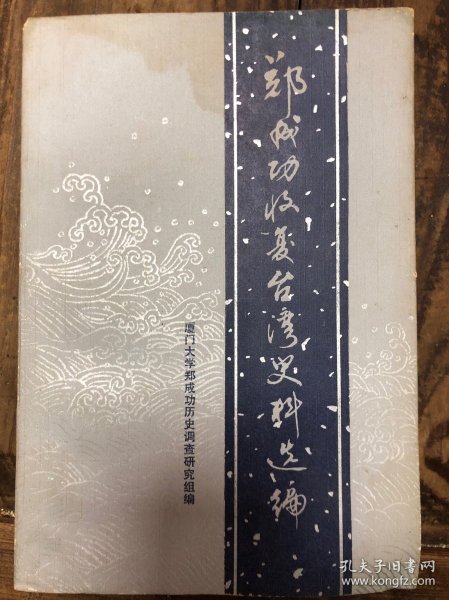 郑成功收复台湾史料选编
厦门大学郑成功历史调查研究组编
孔夫子旧书网
www.kongfz.com